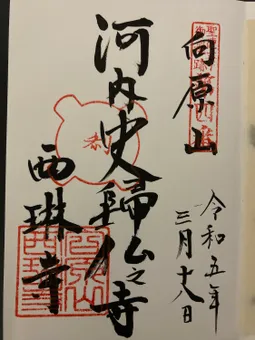 向原山
令和五年
三月十八日
河内史帰仏之寺
西琳寺